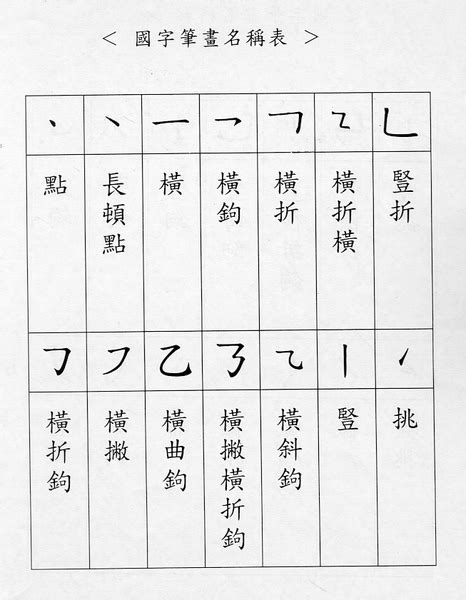 < 國字筆畫名稱表 >
丶 ㇔ 一 乛 𠃍 ㇍ 𠃊
點
長頓點
橫
橫鉤
橫折
橫折橫
豎折
𠃌 ㇇ 乙 ㇌ ⺄ 丨 ㇀
橫折鉤
橫撇
橫曲鉤
橫撇橫折鉤
橫斜鉤
豎
挑